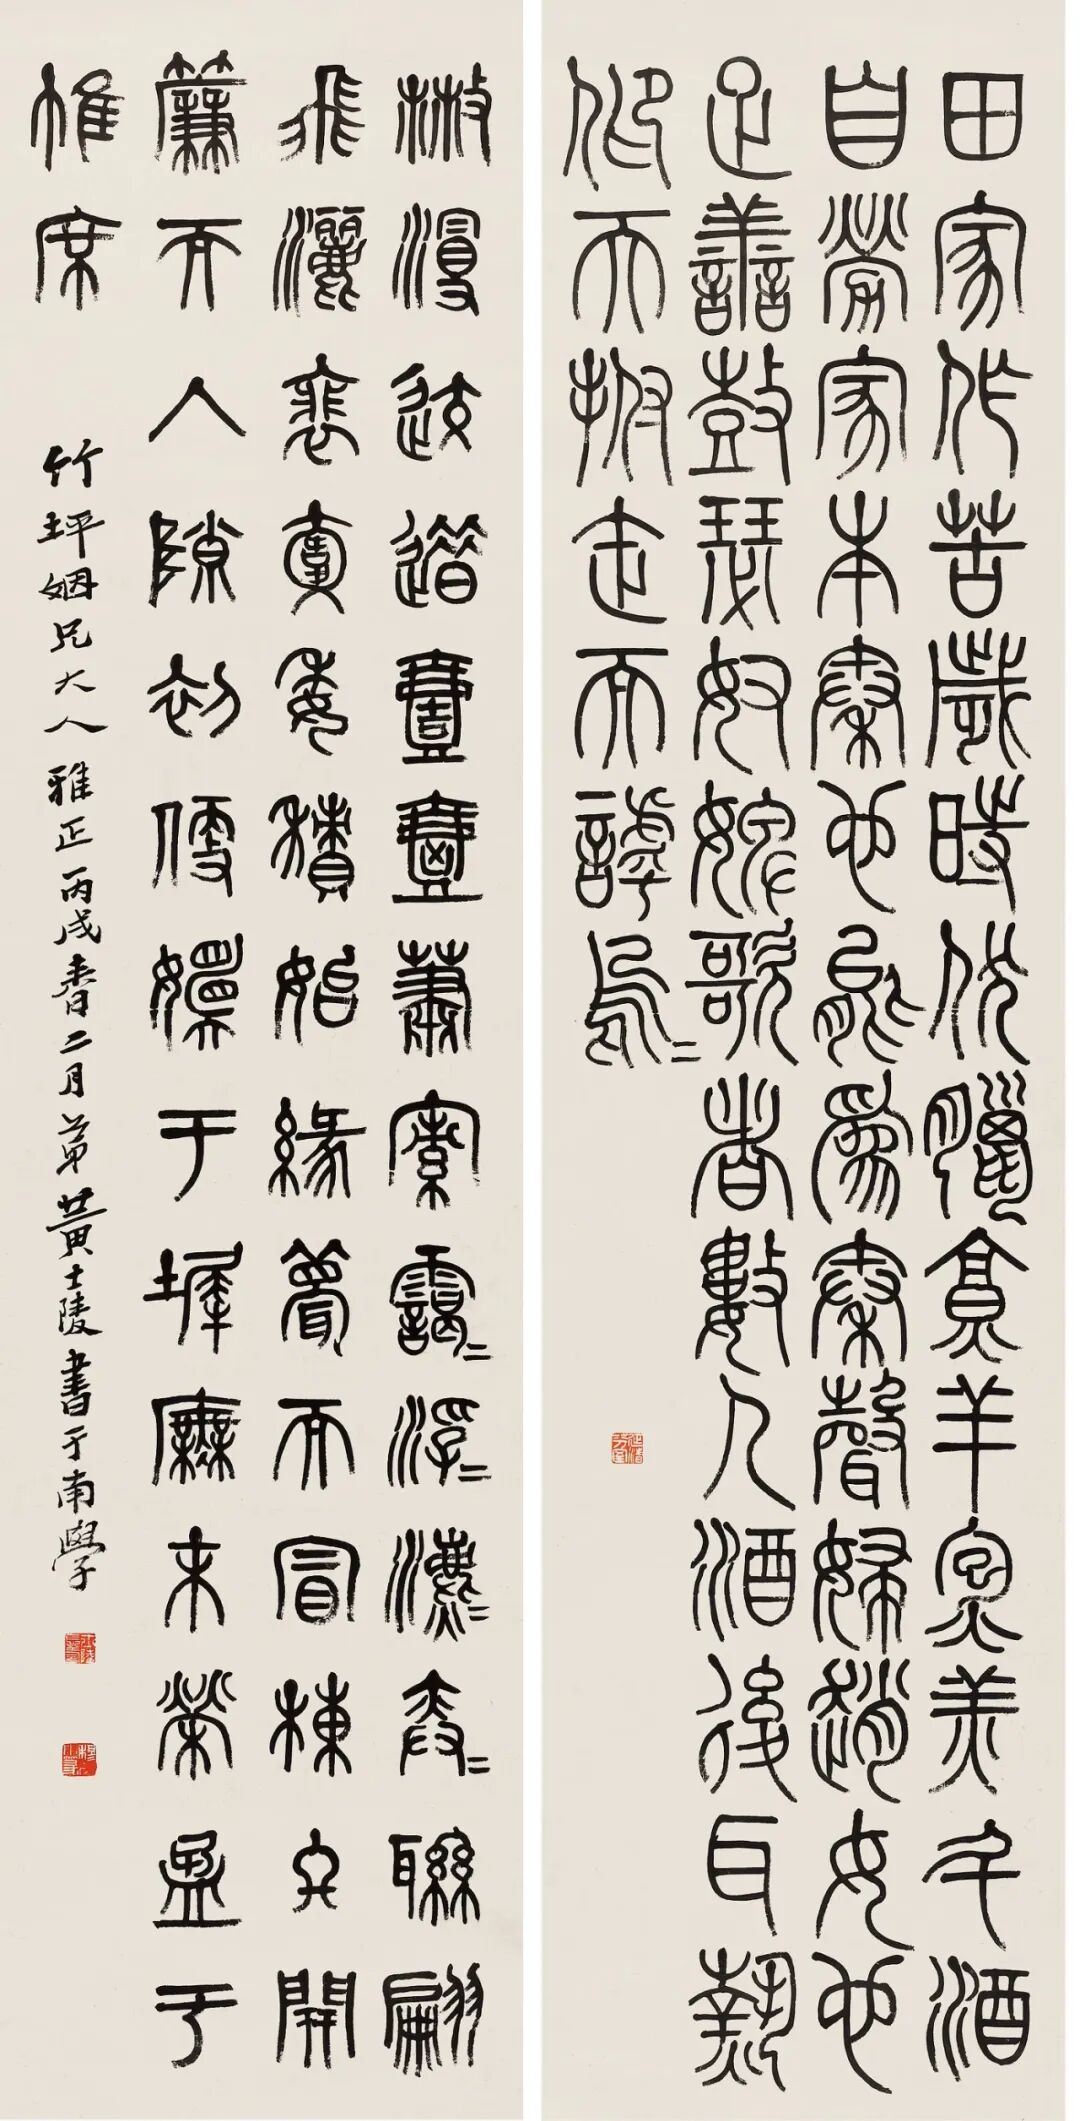 田家作苦歲時伏臘亨羊炰羔斗酒
自勞家本秦也能爲秦聲婦趙女也
疋善鼓瑟奴婢歌者數人酒後耳熱
仰天拊缶而謼烏〻
㪔漫䢒逪壹壺蕭索藹〻浮〻瀌〻弈〻聯翩
飛灑裵回委積始緣甍而冒棟終開
簾而入隙初便嬛于墀廡末縈盈于
帷席
竹坪姻兄大人雅正丙戌春二月弟黃士陵書于南學